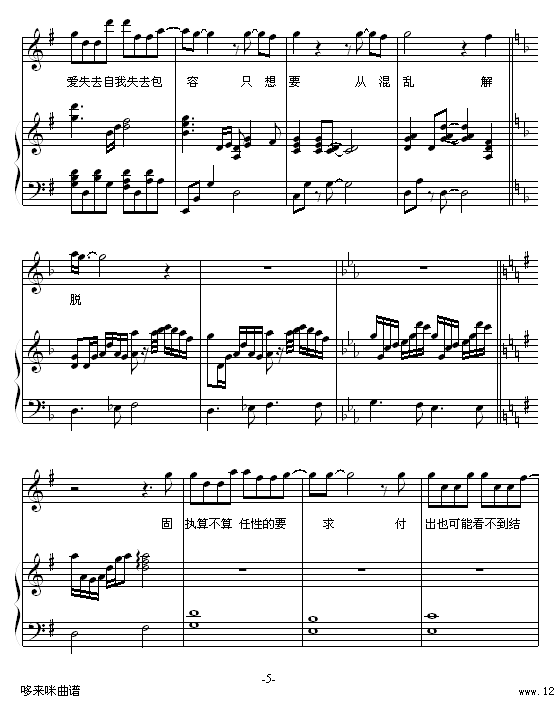 爱失去自我失去包 容 只 想 要 从 混 乱 解
脱
固 执算不算 任性的要 求 付 出也可能看不到结
-5-
哆来咪曲谱 www.12